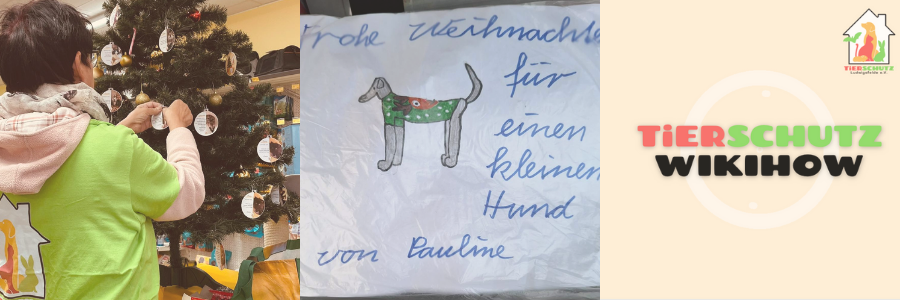 Frohe Weihnachte
für
einen
kleinen
Hund
von Pauline
TiERSCHUTZ
WIKIHOW
TiERSCHUTZ
Ludwigsfelde e.V.